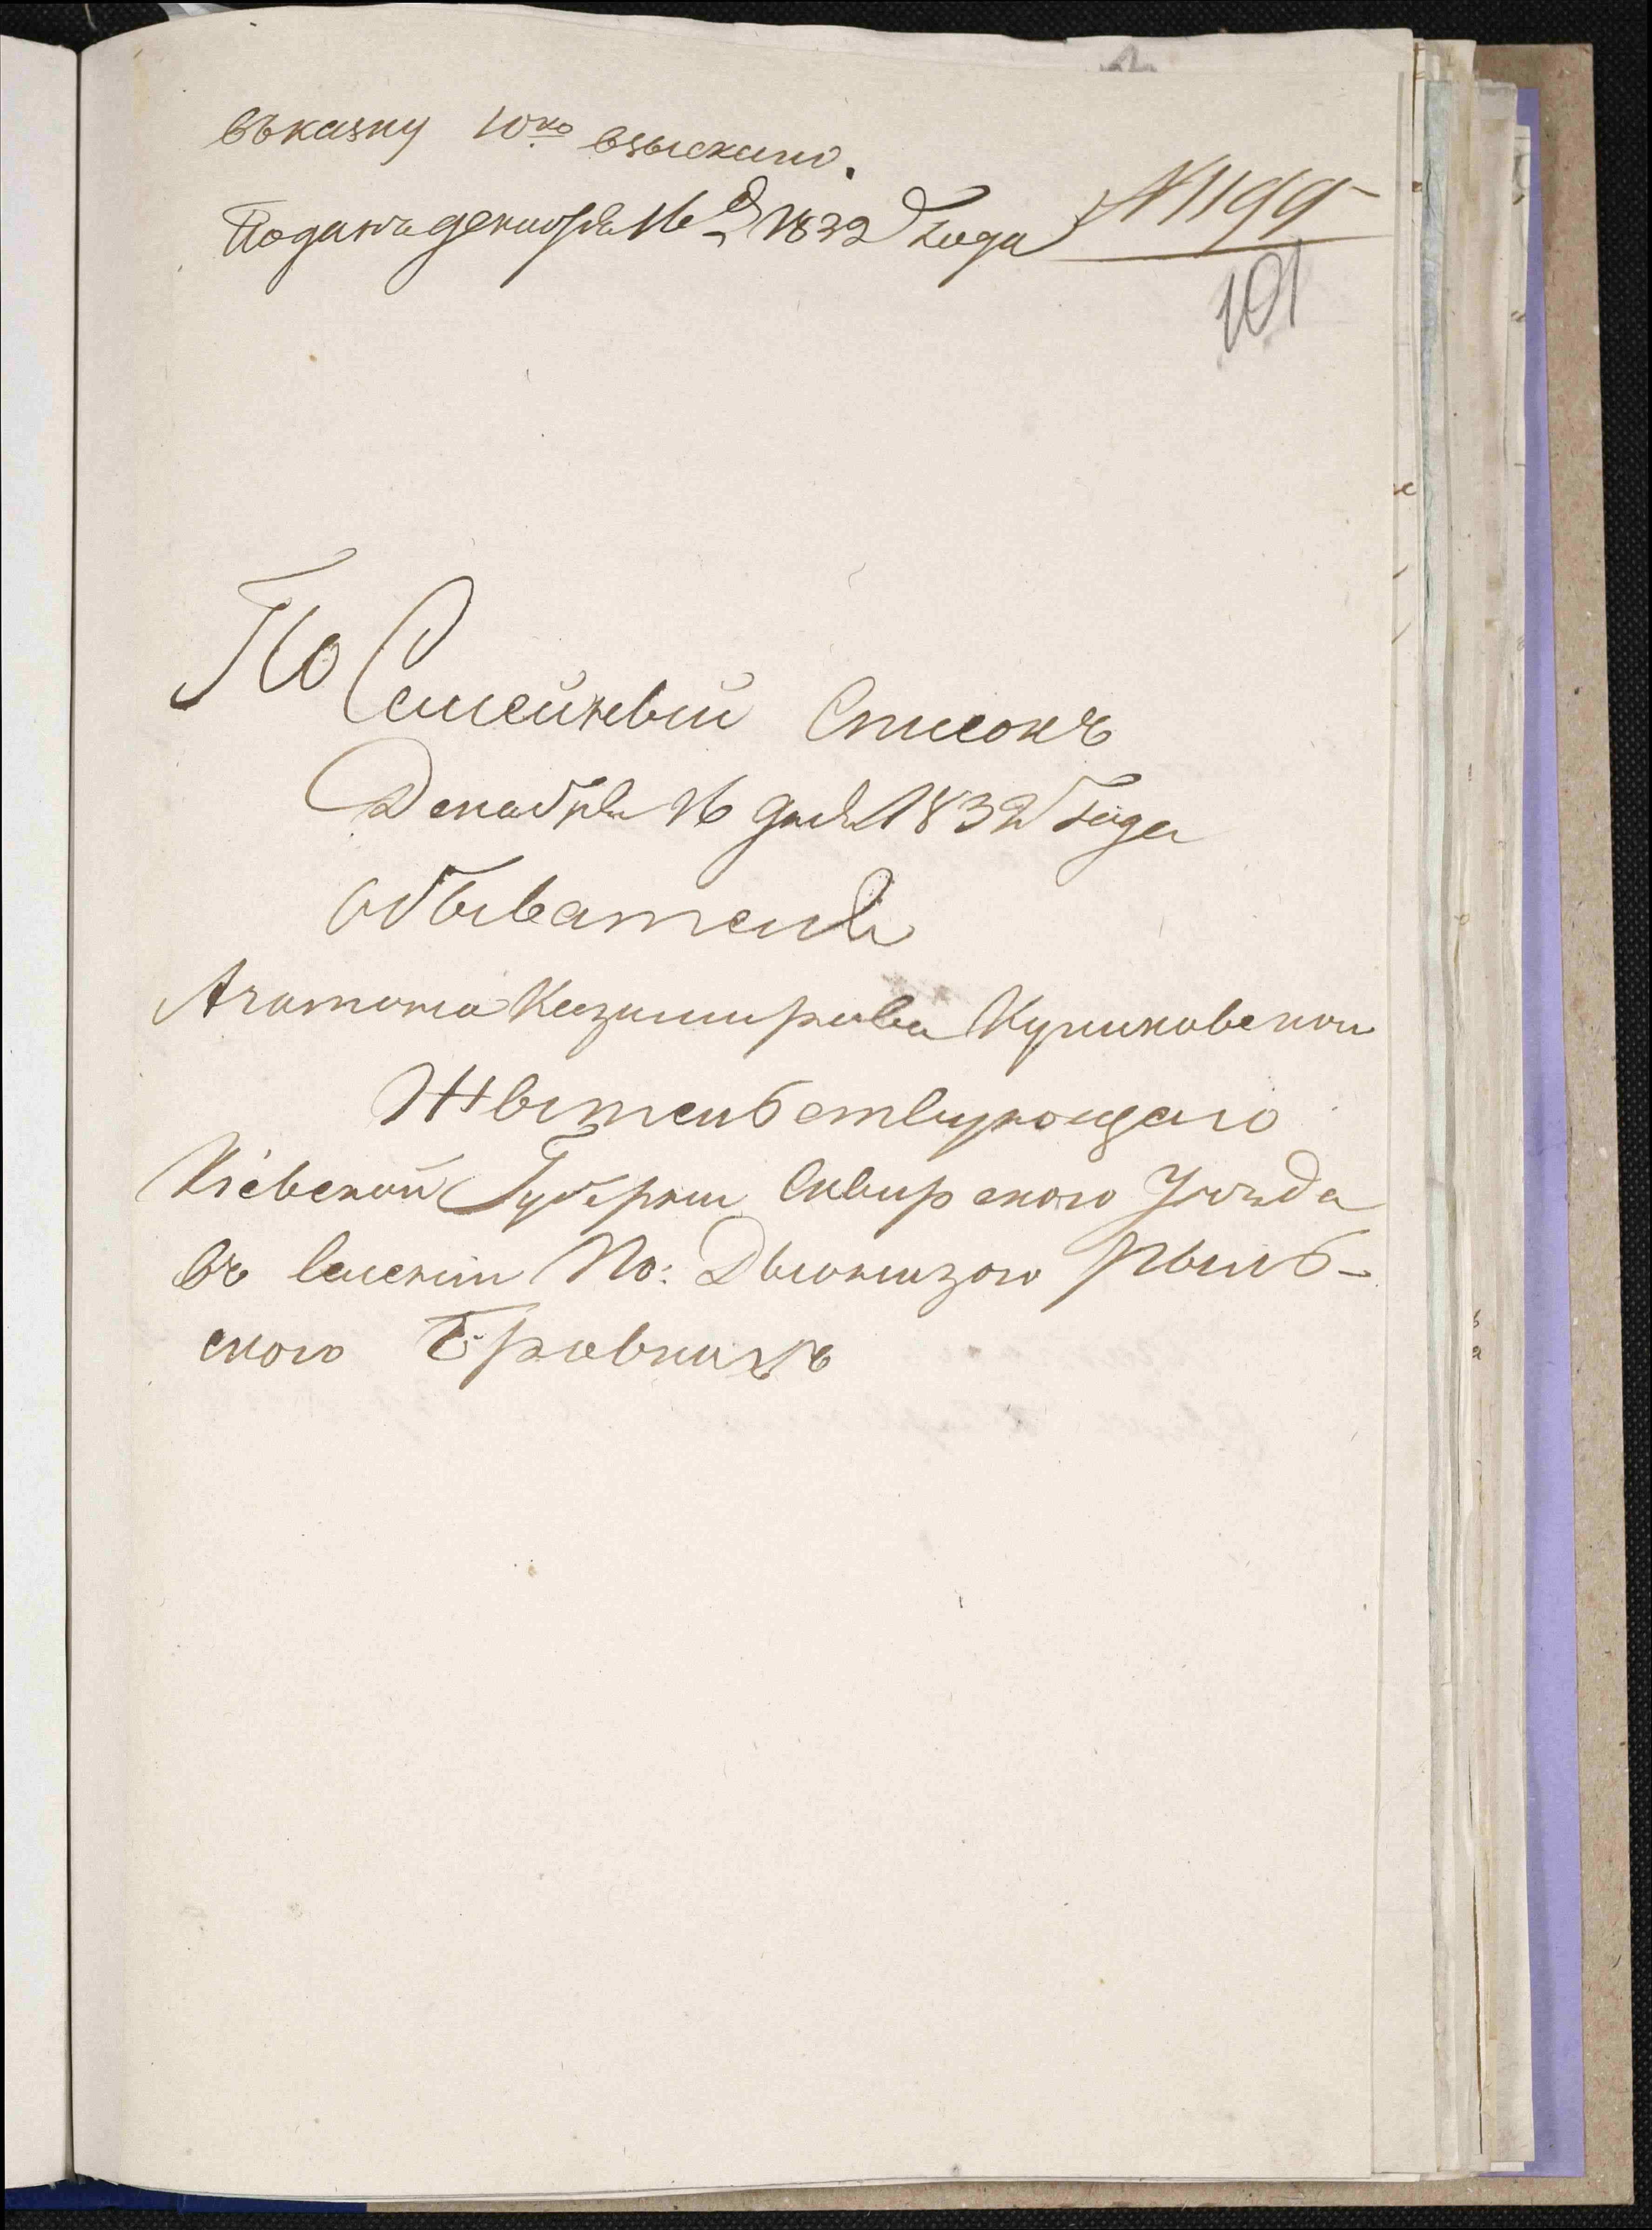 въказну 10ко взыскано.
Поданъ декабря 16 д 1832 Года №1199
101
По Семейный Списокъ
Декабря 16 дня 1832 Года
обывателя
Агатона Казимирова Куликовскои
Жытельствующаго
Кіевской Губерніи Сквирского Уезда
въ Селеніи По: Двонизого Рыль-
ского Бровкахъ